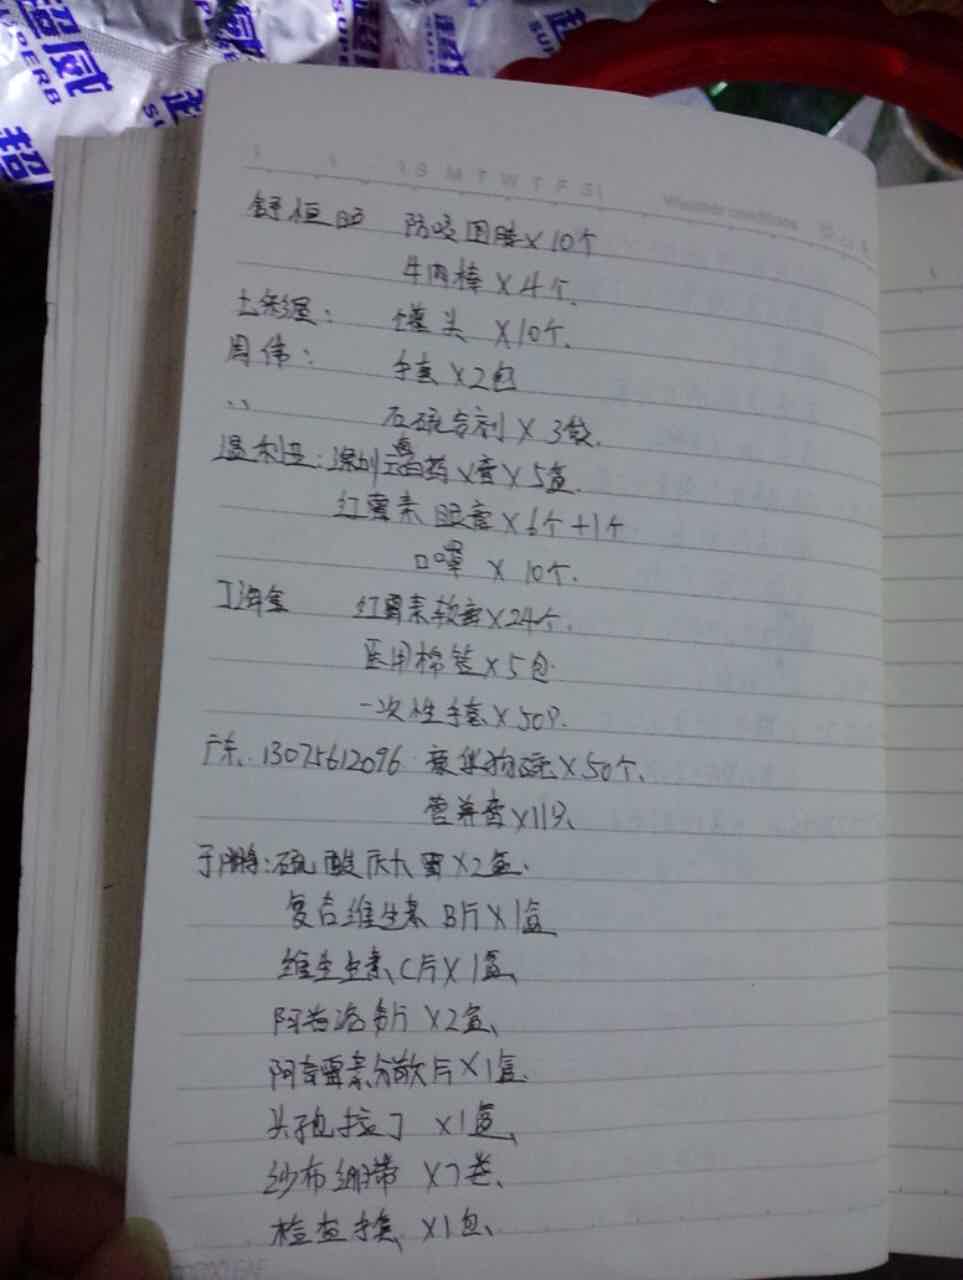 超威
SUPERB
超
S M T W T F S
舒恒 防咬圈脖×10个
牛肉棒×4个.
七彩屋: 罐头 ×10个.
周伟: 手套×2包
石硫合剂×3袋.
温利亚:深圳 药 膏×5盒.
红霉素眼膏×6个+1个
口罩 ×10个.
红霉素软膏×24个.
医用棉签×5包
一次性手套×50只.
广东. 13075612096 ×50个、
营养膏×11只、
于鹏:硫酸庆大霉×2盒.
复合维生素B片×1盒
维生生素C片×1盒、
阿昔洛韦片×2盒、
阿奇霉素分散片×1盒.
头孢拉丁 ×1盒、
纱布绷带 ×7卷、
检查手套 ×1包、